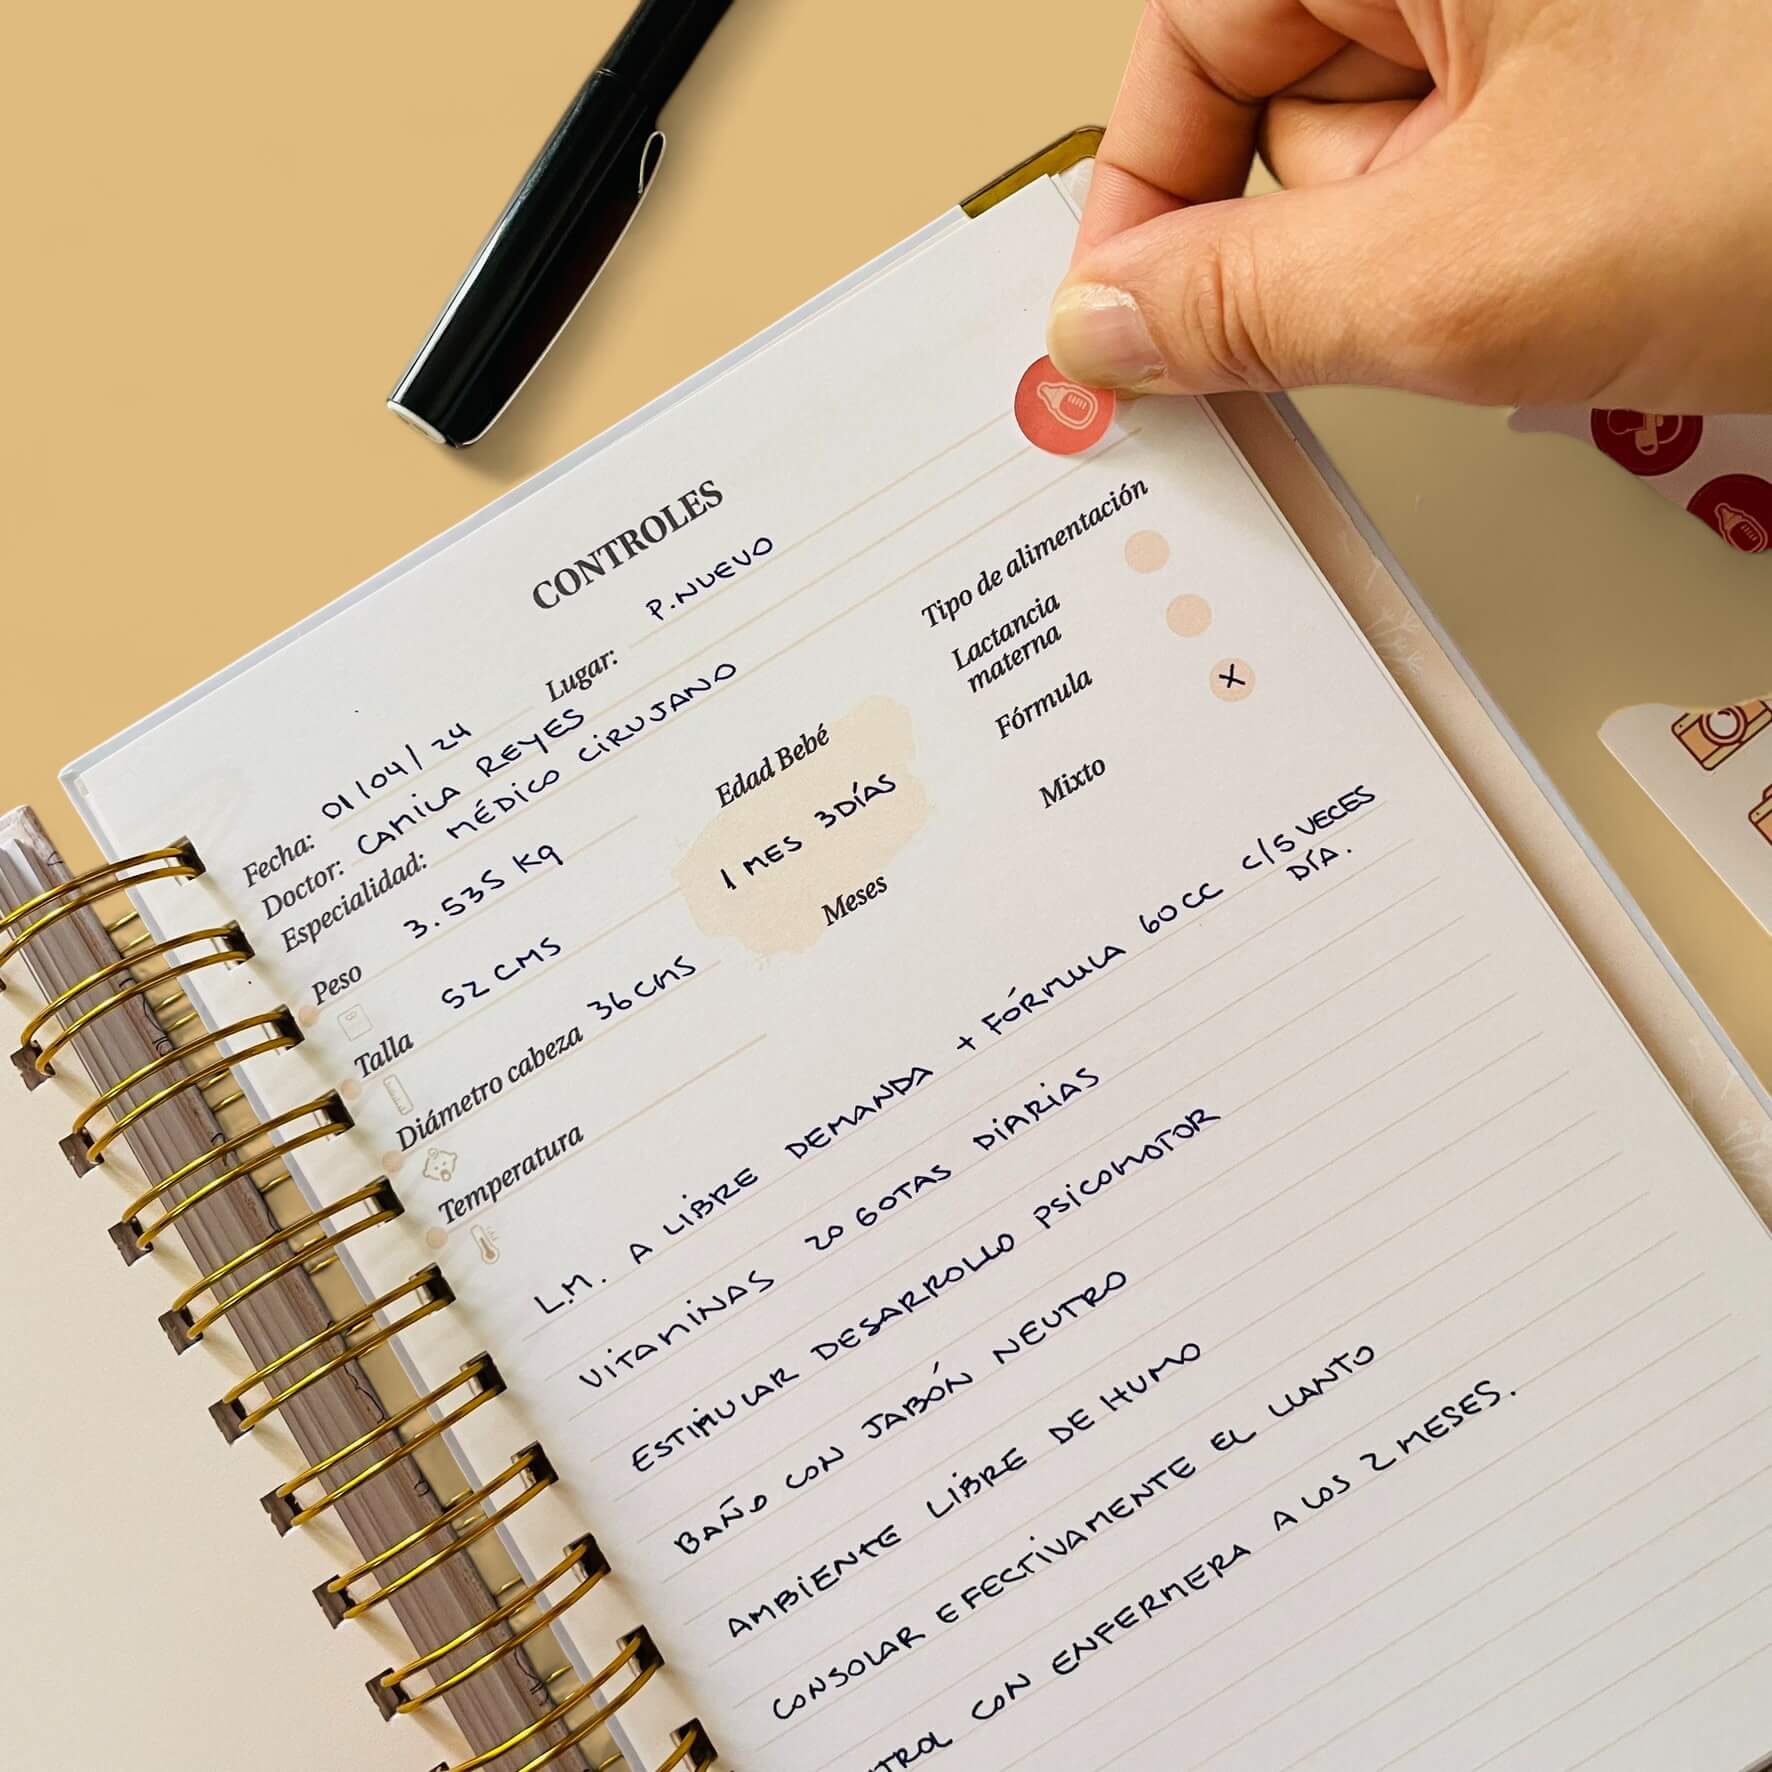 CONTROLES
Fecha: 01/04/24 Lugar: P. NUEVO
Doctor: CAMILA REYES
Especialidad: MÉDICO CIRUJANO
Peso 3.535 Kg
Talla 52 CMS
Diámetro cabeza 36 CMS
Temperatura
Edad Bebé
1 MES 3 DÍAS
Meses
Tipo de alimentación
Lactancia
materna
Fórmula
Mixto X
L.M. A LIBRE DEMANDA + FÓRMULA 60 CC C/5 VECES
DÍA.
VITAMINAS 20 GOTAS DIARIAS
ESTIMULAR DESARROLLO PSICOMOTOR
BAÑO CON JABÓN NEUTRO
AMBIENTE LIBRE DE HUMO
CONSOLAR EFECTIVAMENTE EL LLANTO
TROL CON ENFERMERA A LOS 2 MESES.